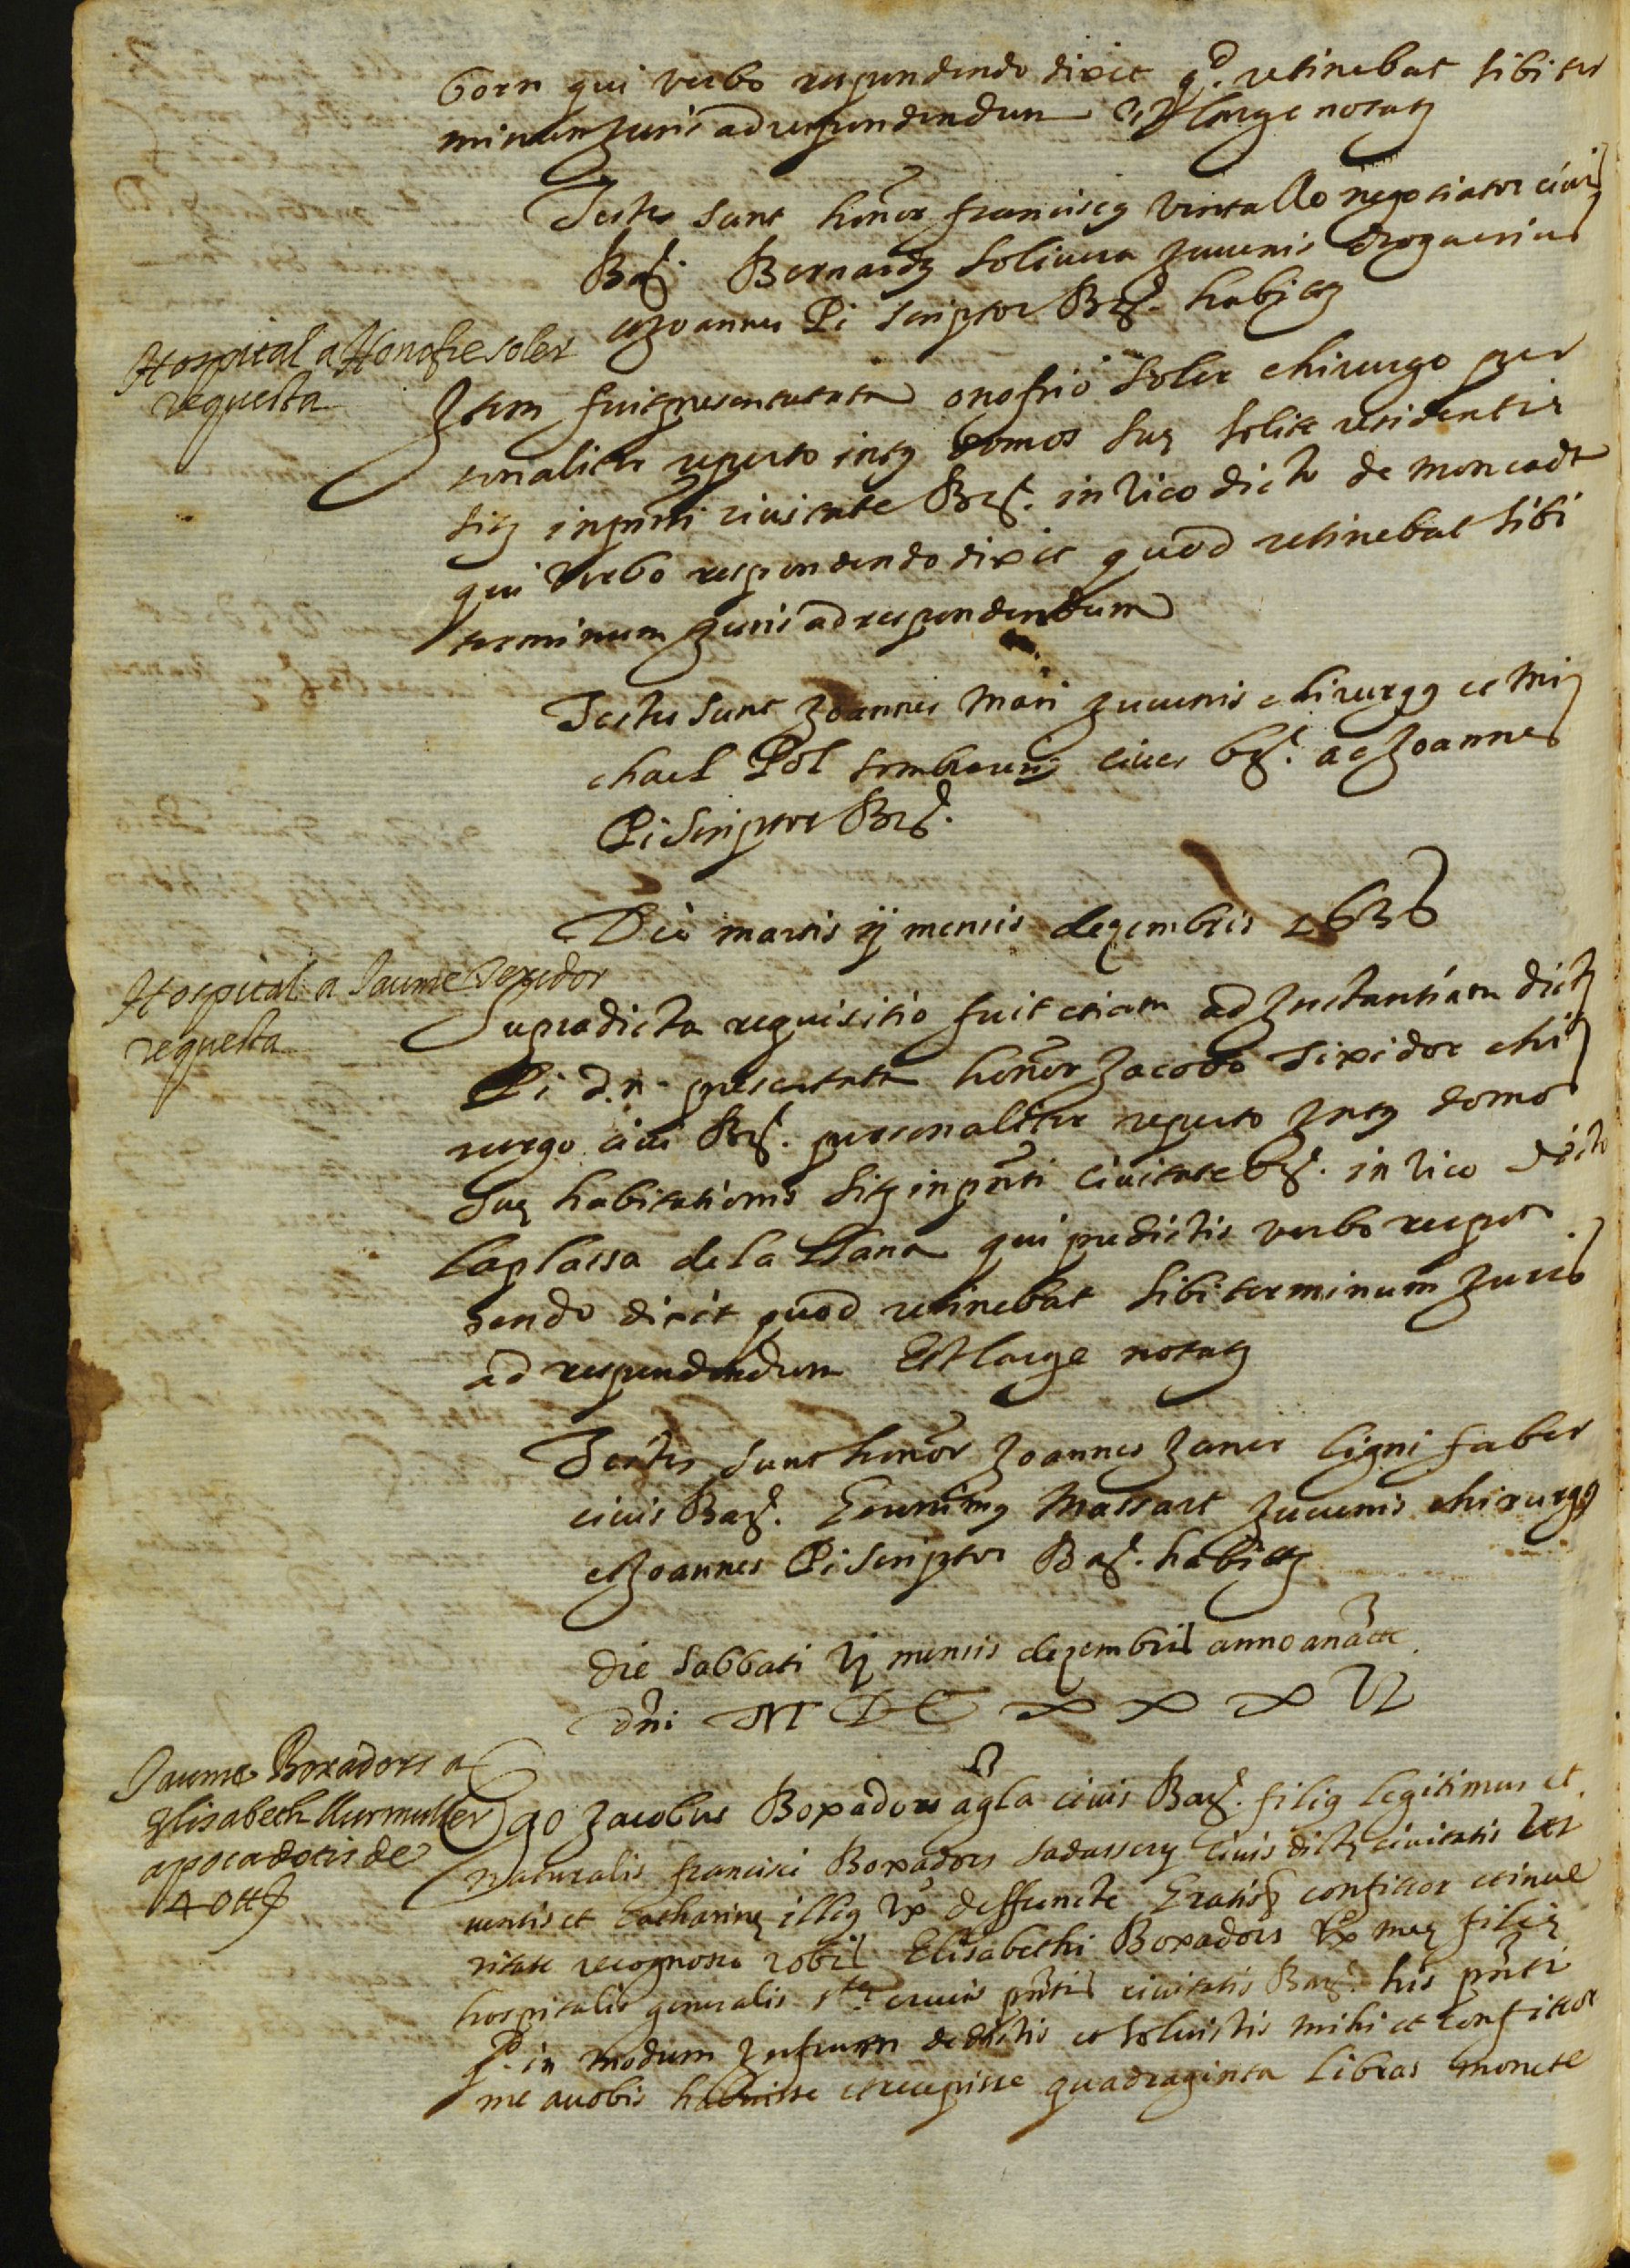 Born qui verbo respondendo dixit qd. retinebat sibi ter
minum juris ad respondendum Est large notatu
Testes sunt honor franciscus vintallo negotiator civis
Barc. Bernardus Solivera juvenis droguerius
et Joannes Pi scriptor Bar. habitt
Hospital a Honofre soler
requesta
Item fuit presentata onofrio Soler chirurgo per
sonaliter reperto intus domos sue solite residentie
sitas in pnti civitate Bar. in vico dicto de moncada
qui verbo respondendo dixit quod retinebat sibi
terminum juris ad respondendum
Testes sunt Joannes Mari juvenis chirurgus et Mi
chael Pol sombrerius cives br. ac Joannes
Pi Scriptor Bar.
Die martis ij mensis dezembris 1636
Hospital a Jaume Texidor
requesta
Supradicta requisitio fuit etiam ad Instantiam dicti
Pi d. n. presentata honor Jacobo Tixidor chi
rurgo civi Bar. personaliter reperto Intus domos
sue habitationis sitas in pnti Civitate br. in vico dicto
la plassa de la Llana qui predictis verbo respon
dendo dixit quod retinebat sibi terminum juris
ad respondendum Est large notatu
Testes sunt honor Joannes Janer ligni faber
civis Bar. Geronimus Massart juvenis chirurgus
et Joannes Pi Scriptor Bar. habitt
Die Sabbati vj mensis dezembris anno a natte
dni M DC X X X VI
Jaume Boxadors a
Elisabeth llurmuller
apoca dotis de
40 ll
Ego Jacobus Boxadors agla civis Bar. filius legitimus et
naturalis francisci Boxadors civis dicte civitatis
ventis et Catharine illius ux deffuncte Gratis confiteor et in ve
ritate recognosco vobis Elisabethi Boxadors ux mee filie
hospitalis generalis ste crucis pntis civitatis Bar. his pnti
qd. in modum Infrum dedistis et solvistis mihi et confiteor
me a vobis habuisse et recepisse quadraginta libras monete